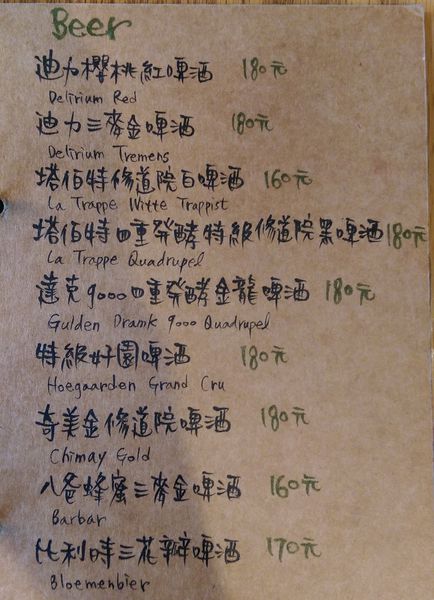 Beer
迪力櫻桃紅啤酒 180元
Delirium Red
迪力三麥金啤酒 180元
Delirium Tremens
塔伯特修道院白啤酒 160元
La Trappe Witte Trappist
塔伯特四重發酵特級修道院黑啤酒 180元
La Trappe Quadrupel
達克9000四重發酵金龍啤酒 180元
Gulden Drank 9000 Quadrupel
特級好園啤酒 180元
Hoegaarden Grand Cru
奇美金修道院啤酒 180元
Chimay Gold
八爸蜂蜜三麥金啤酒 160元
Barbar
比利時三花瓣啤酒 170元
Bloemenbier